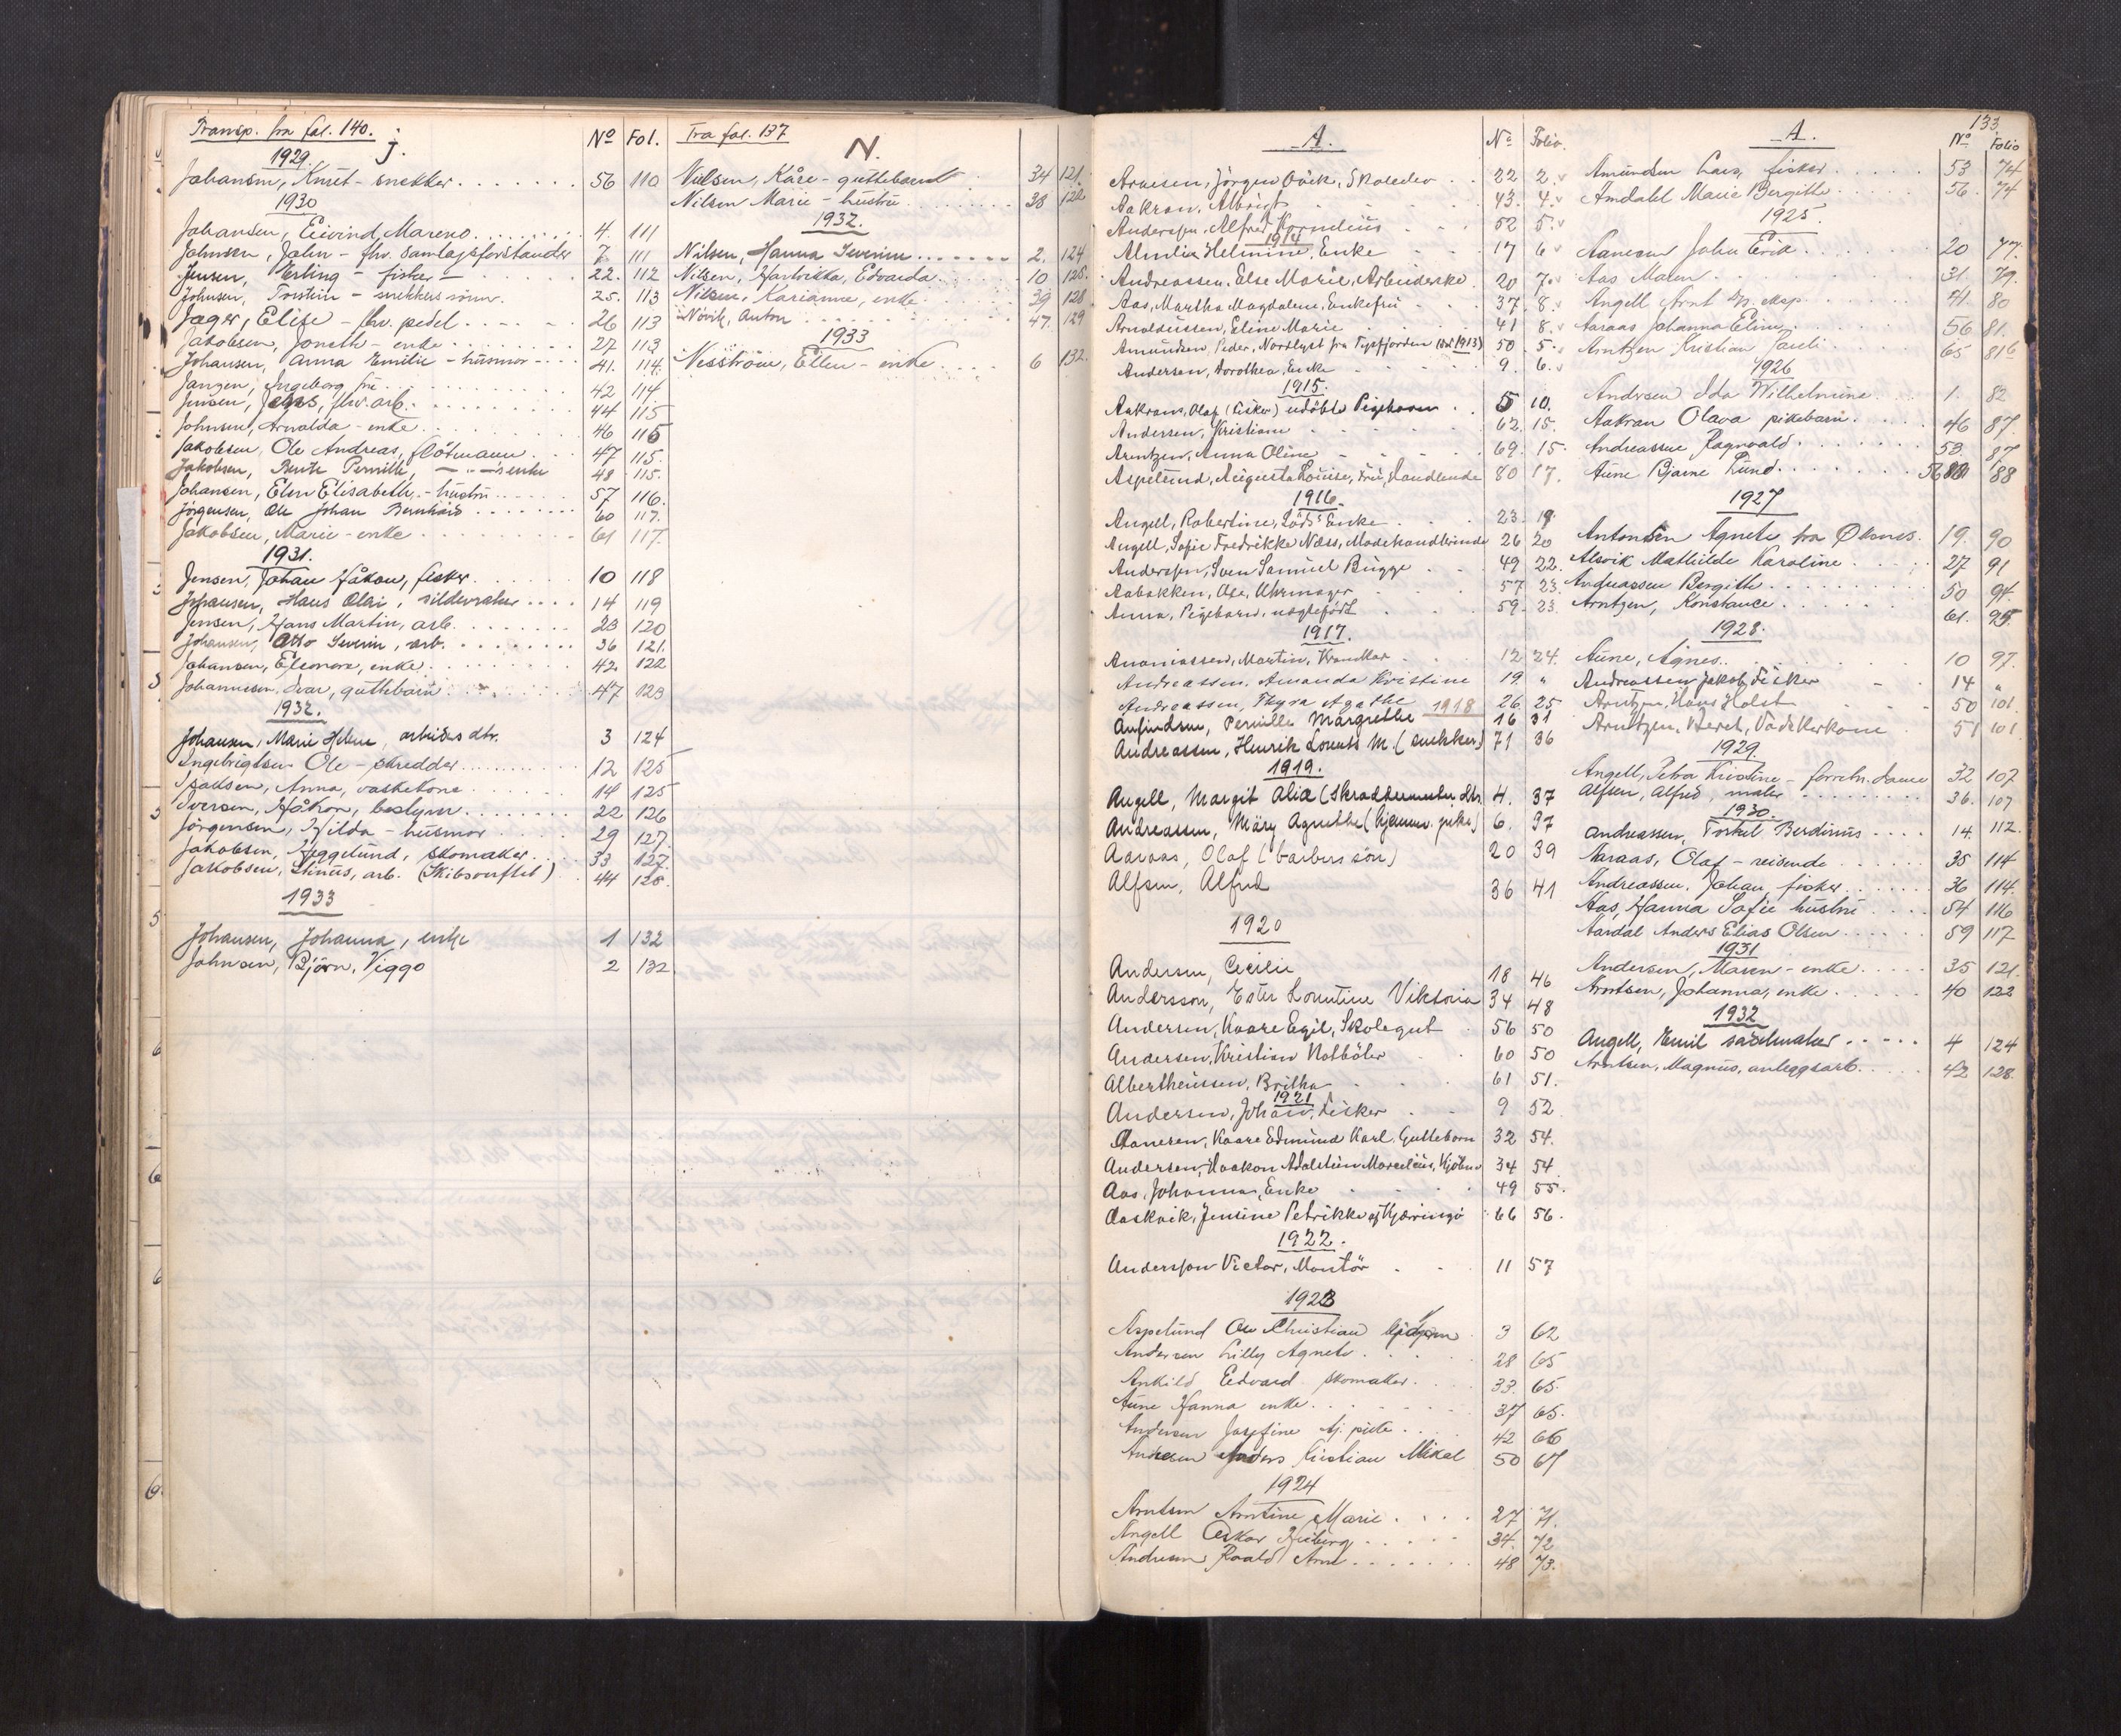 Transp. fra fol. 140. J. No Fol.
1929.
Johansen, Knut - snekker. 56 110
1930
Johansen, Eivind Mareno. 4. 111
Johnsen, John - fhv. Samlagsforstander 7. 111
Jensen, Erling - fisker 22. 112
Johnsen, - snekkers sönn. 25. 113
Jæger, Elise - fhv. pedel 26 113
Jakobsen, - enke 27 113
Johansen, Anna Emilie - husmor 41. 114.
Jangen, Ingeborg, fru 42 114.
Jensen, fhv. arb. 44 115
Johnsen, Arnolda - enke 46 115
Jakobsen, Ole Andreas, flötmann 47 115.
Jakobsen, Pernille, enke 48 115.
Johansen, Elen Elisabeth - hustru 57 116.
Jörgensen, Ole Johan Bernhard 60 117.
Jakobsen, Marie - enke 61 117.
1931.
Jensen, Johan Håkon, fisker. 10 118
Johansen, Hans Olai, sildevraker 14 119
Jensen, Hans Martin, arb. 23 120
Johansen, Otto Severin, arb. 36 121.
Johansen, Eleonora, enke 42 122
Johannesen, Ivar, guttebarn 47 123
1932.
Johansen, Marie Helene, arbeiders dtr. 3 124
Ingebrigtsen Ole - skredder 12 125
Isaksen, Anna, vaskekone 14 125
Iversen, Håkon, bestyrer 22 126
Jörgensen, Hilda - husmor 29 127.
Jakobsen, Heggelund, skomaker 33 127.
Jakobsen, arb. (Skibsverftet) 44 128.
1933
Johansen, Johanna, enke 1 132
Johnsen, Björn, Viggo 2 132
Fra fol. 137 N.
Nielsen, Kåre - guttebarnet 34 121.
Nilsen Marie - hustru 38 122
1932.
Nilsen, Hanna Severine 2. 124
Nilsen, Hartvikka, Edvarda 10 125.
Nilsen, Karianne, enke 39 128
Növik, Anton 47. 129
1933
Nesström, Ellen - enke 6 132.
A. No Folio.
Arnesen, Jörgen 22 2.
Aakran, Albrigt 43. 4.
Anderssen, Alfred Kornelius 52 5.
1914
Almlie Helmine, Enke 17 6
Andreassen, Else Marie, Arbeiderske 20 7.
Aas, Martha Magdalene, Enkefru 37. 8.
Arnoldussen, Eline Marie 41 8.
Amundsen, Peder, Nordlyst fra Tysfjorden (1913) 50 5.
Andersen, Dorothea, Enke 9. 6.
1915.
Aakrann, Olaf (Fisker) udöbte Pigebarn 5 10.
Andersen, Kristiane 62. 15.
Arentzen, Anna Oline 69. 15.
Aspelund, Augusta Louise, Fru, Handlende 80 17.
1916.
Angell, Robertine, Enke 23. 19.
Angell, Sofie Fredrikke Næss, Modehandlerinde 26 20
Anderssen, Sven Samuel Bugge 49 22.
Aabakken, Ole, Uhrmager 57 23.
Anna, Pigebarn, uægtefödt 59. 23.
1917.
Ananiassen, Martin, 12 24.
Andreassen, Amanda Kristine 19. "
Andreassen, Thyra Agathe 26. 25
1918
Anfindsen, Pernille Margrethe 16 31
Andreassen, Henrik Lorents M. (snekker) 71 36
1919.
Angell, Margit Alia (Skraddermester dtr. 4. 37
Andreassen, Märy Agnethe (hjemmev. pike) 6. 37
Aaraas, Olaf (barbers sön) 20 39
Alfsen, Alfred 36 41
1920
Andersen, Cecilie 18 46
Andersson, Ester Lorentine Viktoria 34 48
Andersen, Kaare Egil, Skolegut 56 50
Andersen, Kristian Notböter 60 50
Albertheussen, Britha 61 51.
1921
Andersen, Johan, Fisker 9 52
Aanesen, Kaare Edmund Karl, Guttebarn 32 54.
Andersen, Haakon Adalstein Marselius, 34 54
Aas, Johanna, Enke 49 55.
Aaskvik, Jensine Petrikke af Kjerringö 66 56.
1922.
Andersson Victor, Montör 11 57
1923
Aspelund Ole Christian 3 62
Andersen Lilly Agnete 28 65
Ankild Edvard skomaker 33. 65.
Aune Hanna enke 37 65.
Andersen Josefine tj. pike 42 66
Andersen Anders Kristian Mikal 50 67
1924
Arntsen Arntine Marie 27 71.
Angell Oskar 34. 72
Andersen Roald Arne 48 73.
133
A. No Folio
Amundsen Lars, fisker 53 74
Amdahl Marie Bergithe 56. 74
1925.
Aanesen John Erik 20 77.
Aas Maren 31. 79.
Angell Arnt 41. 80
Aaraas Johanna Eline 56 81.
Arntzen Kristian Pauli 65 816
1926
Andersen Ida Wilhelmine 1. 82
Aakran Olava pikebarn 46 87
Andreassen Ragnvald 53. 87
Aune Bjarne Lund 56 88
1927
Antonsen Agnete fra Öksnes. 19. 90
Alsvik Mathilde Karoline 27 91
Andreassen Bergithe 50 94.
Arntzen, Konstance 61. 95.
1928.
Aune, Agnes. 10 97.
Andreassen Jakob, Fisker 14 "
Arntzen, Hans Holst 50 101.
Arntzen, Beret, Vaskerkone 51 101.
1929
Angell, Petra Kirstine - forretn. dame 32 107
Alfsen, Alfred, maler 36. 107
1930.
Andreassen, Torkel Berdinus 14. 112.
Aaraas, Olaf - reisende 35 114
Andreassen, Johan, fisker 36 114.
Aas, Hanna Sofie hustru 54 116
Aardal Anders Elias Olsen 59 117.
1931
Andersen, Maren - enke 35 121.
Arntsen, Johanna, enke 40 122
1932
Angell, Emil sadelmaker 4 124
Arntsen, Magnus, anleggsarb. 42 128.